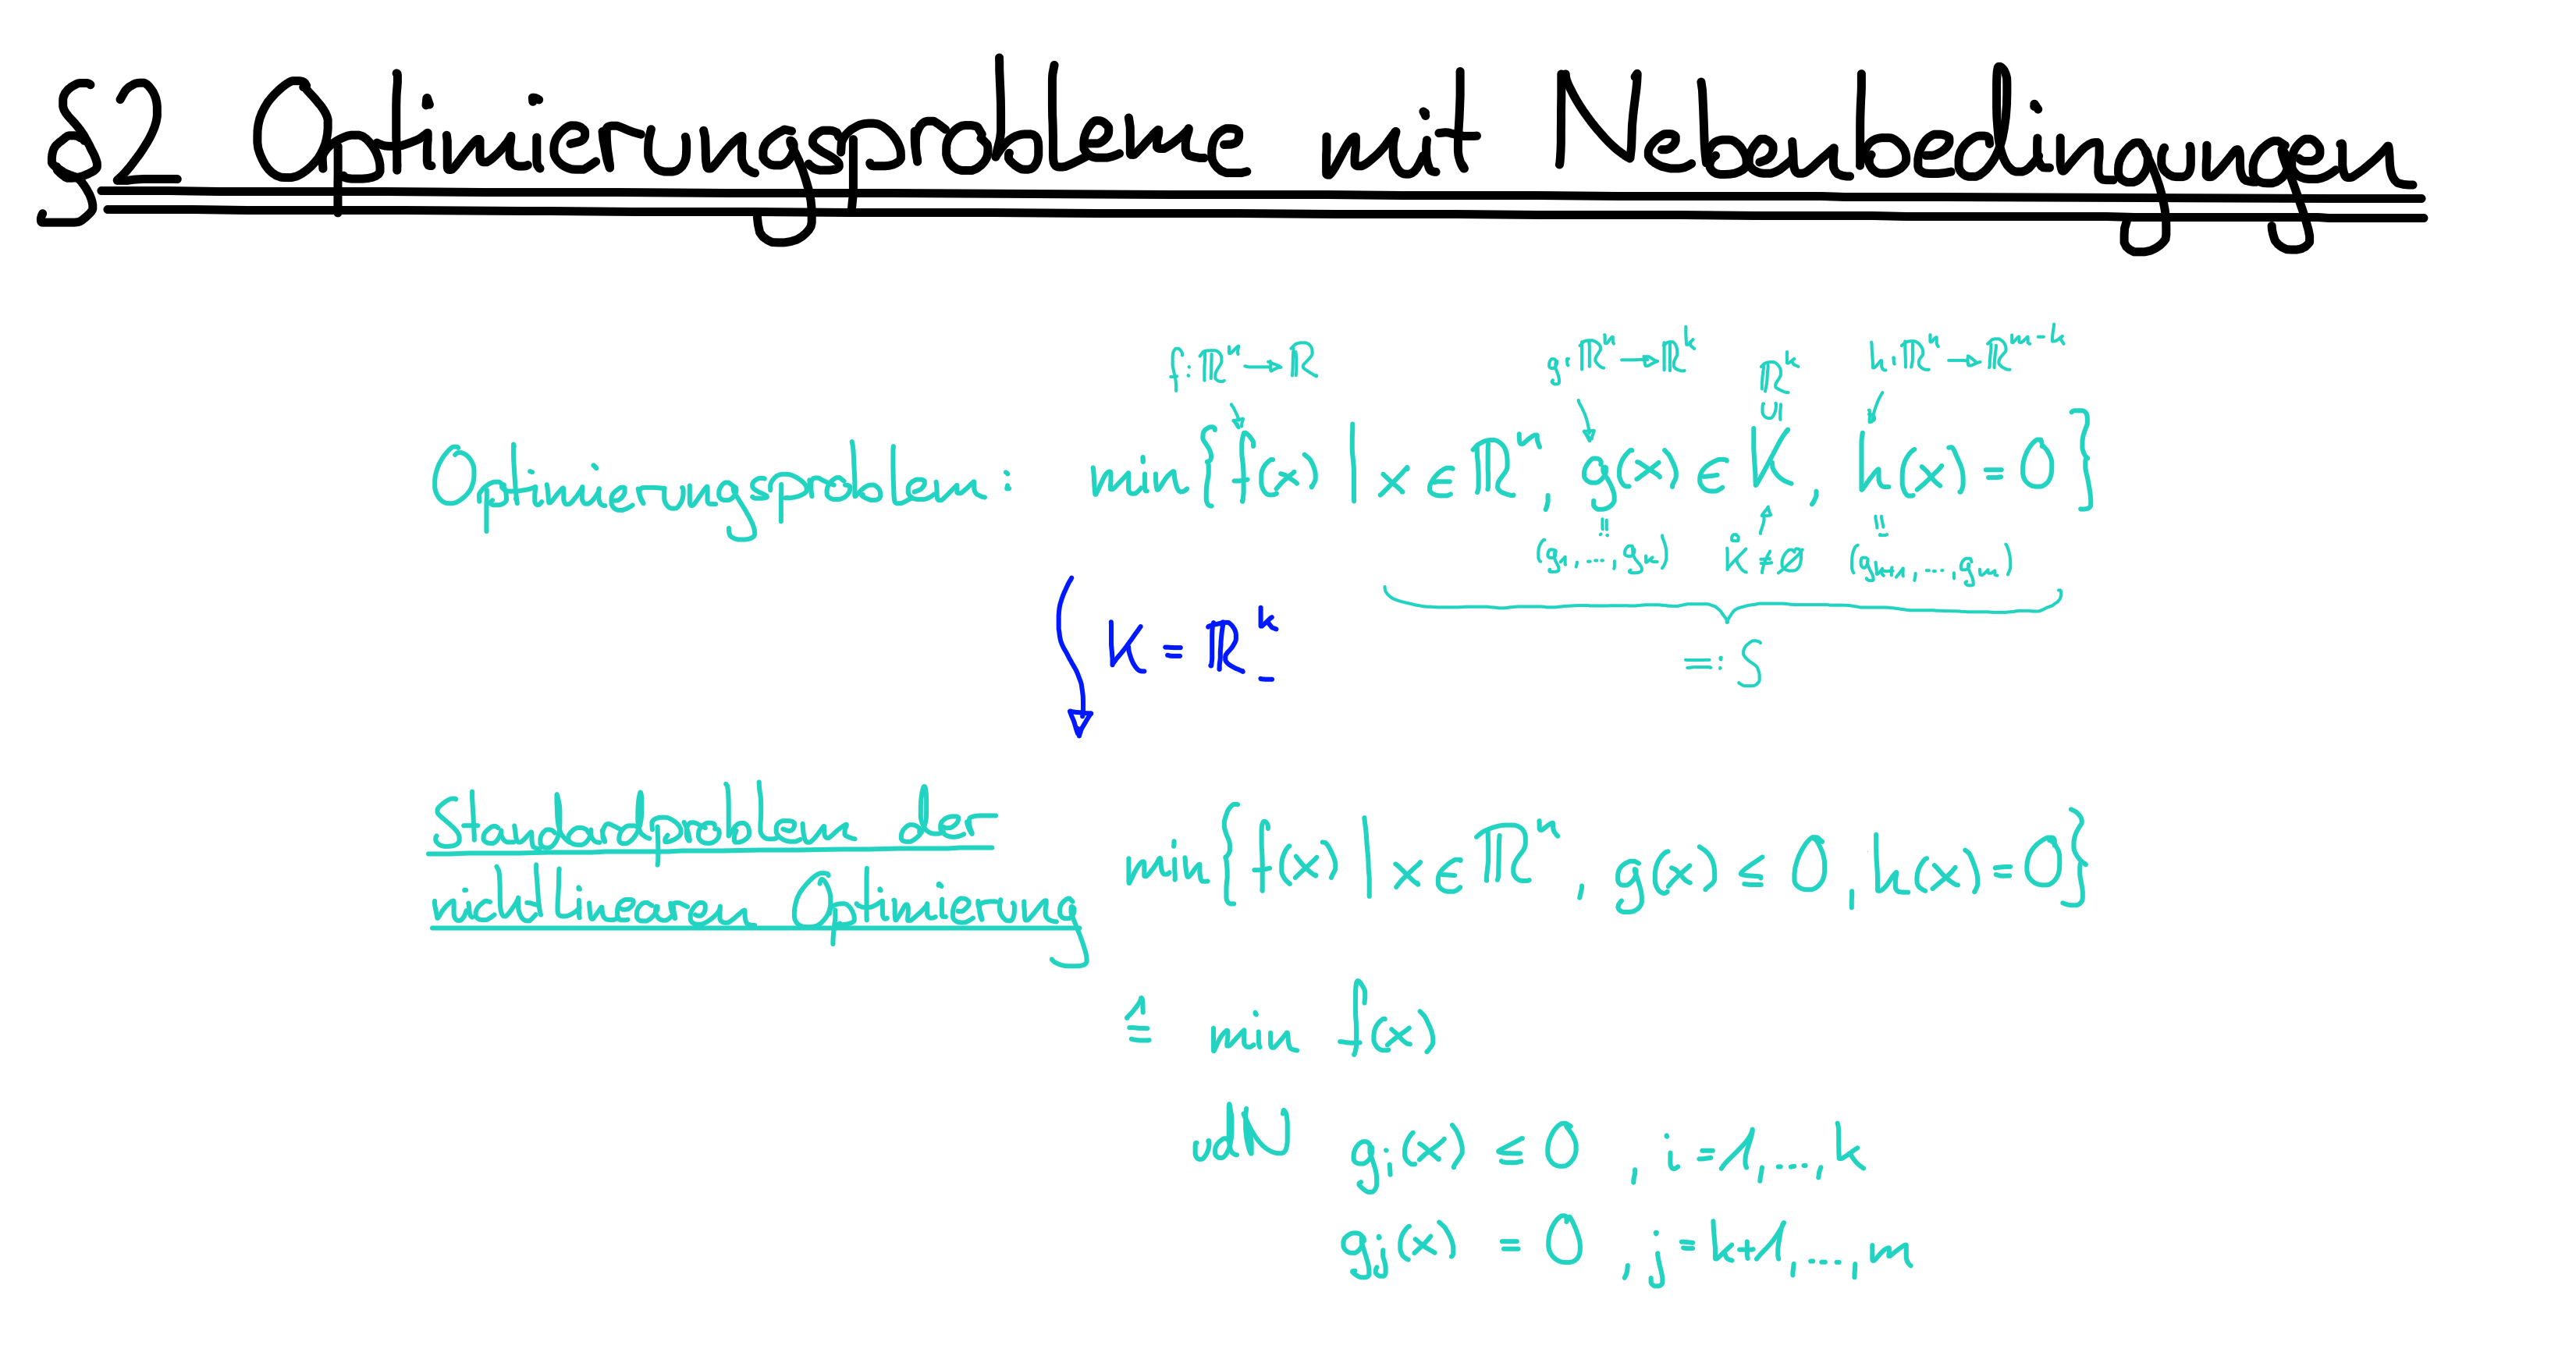 §2 Optimierungsprobleme mit Nebenbedingungen
f: ℝⁿ → ℝ
g: ℝⁿ → ℝᵏ
ℝᵏ
∪ǀǀ
h: ℝⁿ → ℝᵐ⁻ᵏ
Optimierungsproblem: min{f(x) | x ∈ ℝⁿ, g(x) ∈ K, h(x) = 0}
(g₁, ..., gₖ) K̊ ≠ ∅ (gₖ₊₁, ..., gₘ)
=: S
K = ℝᵏ₋
Standardproblem der
nichtlinearen Optimierung
min{f(x) | x ∈ ℝⁿ, g(x) ≤ 0, h(x) = 0}
≙ min f(x)
udN gᵢ(x) ≤ 0 , i = 1, ..., k
gⱼ(x) = 0 , j = k+1, ..., m